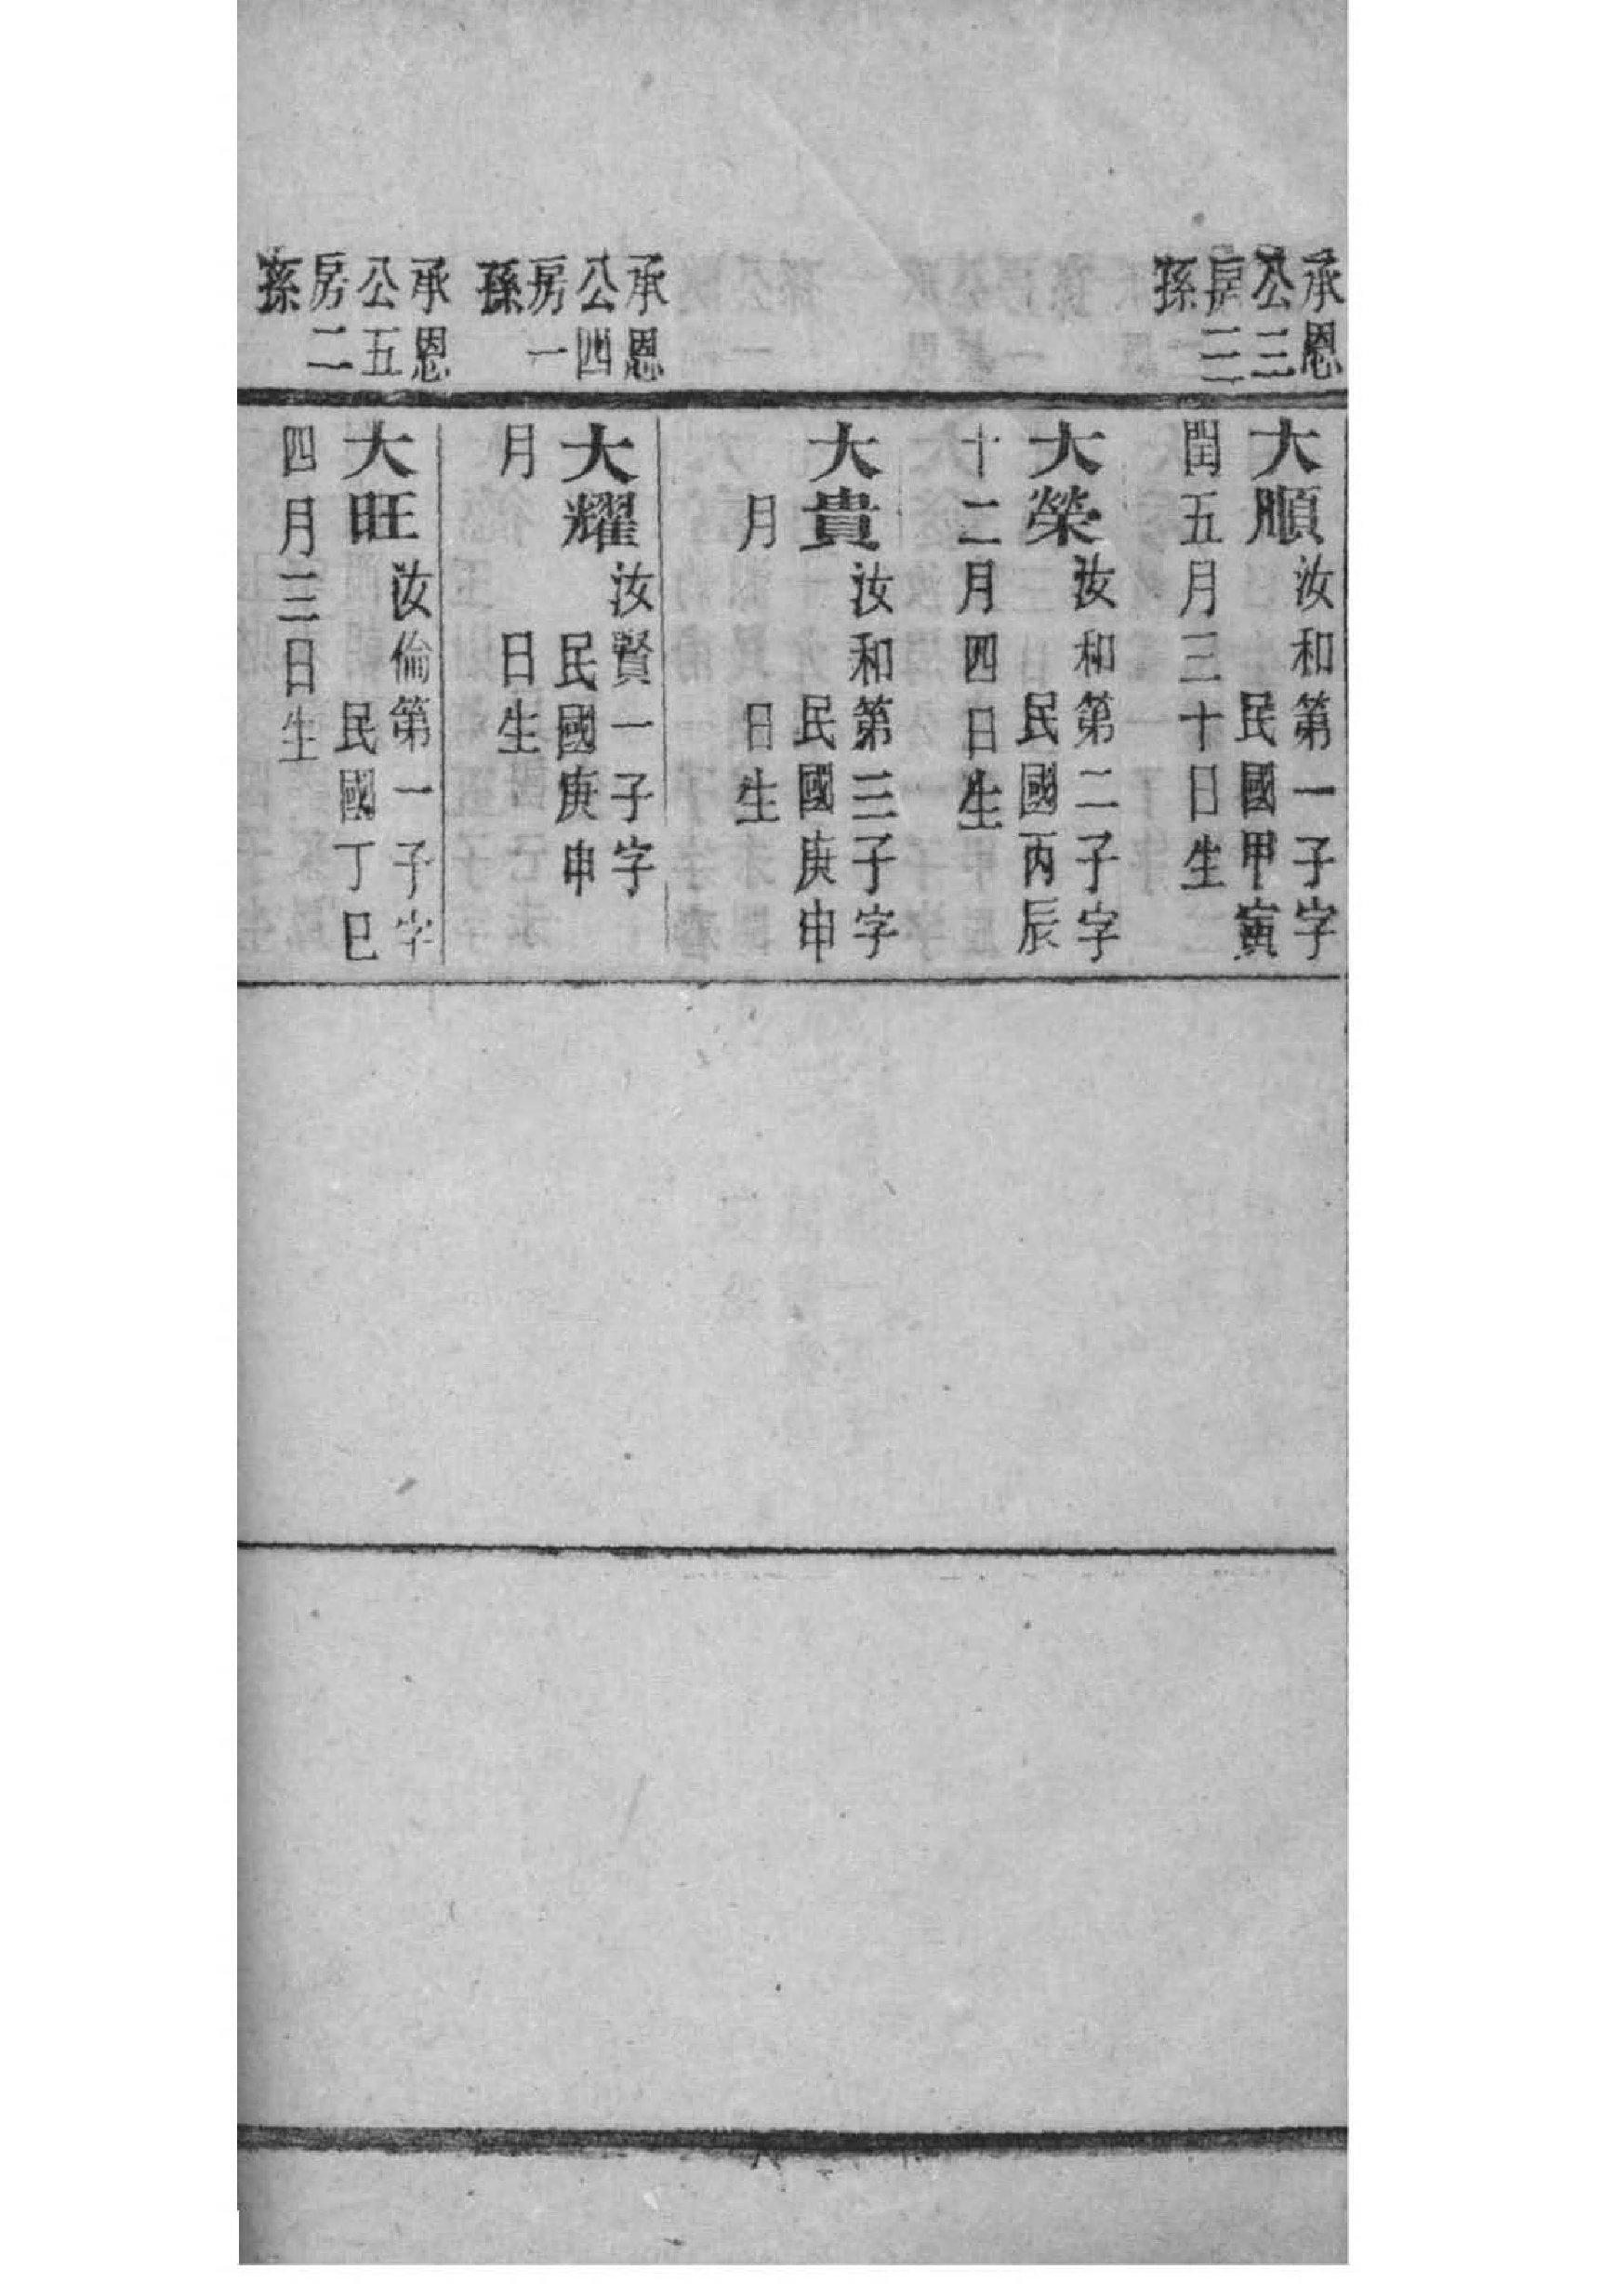 承恩
公三
房三
孫
大順
汝和第一子字
民國甲寅
閏五月三十日生
大榮
汝和第二子字
民國丙辰
十二月四日生
大貴
汝和第三子字
民國庚申
月　　日生
承恩
公四
房一
孫
大耀
汝賢一子字
民國庚申
月　　日生
承恩
公五
房二
孫
大旺
汝倫第一子字
民國丁巳
四月三日生